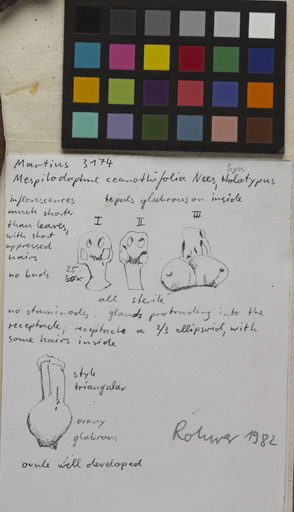 Martius 3174
Mespilodaphne ceanothifolia Nees, Syn Holotypus
inflorescences tepals glabrous on inside
much shorter
than leaves,
with short
appressed
hairs
no buds
I II III
25
all sterile
no staminodes. glands protruding into the
receptacle, receptacle a 2/3 ellipsoid, with
some hairs inside
style
triangular
ovary
glabrous
Rohwer 1982
ovule well developed